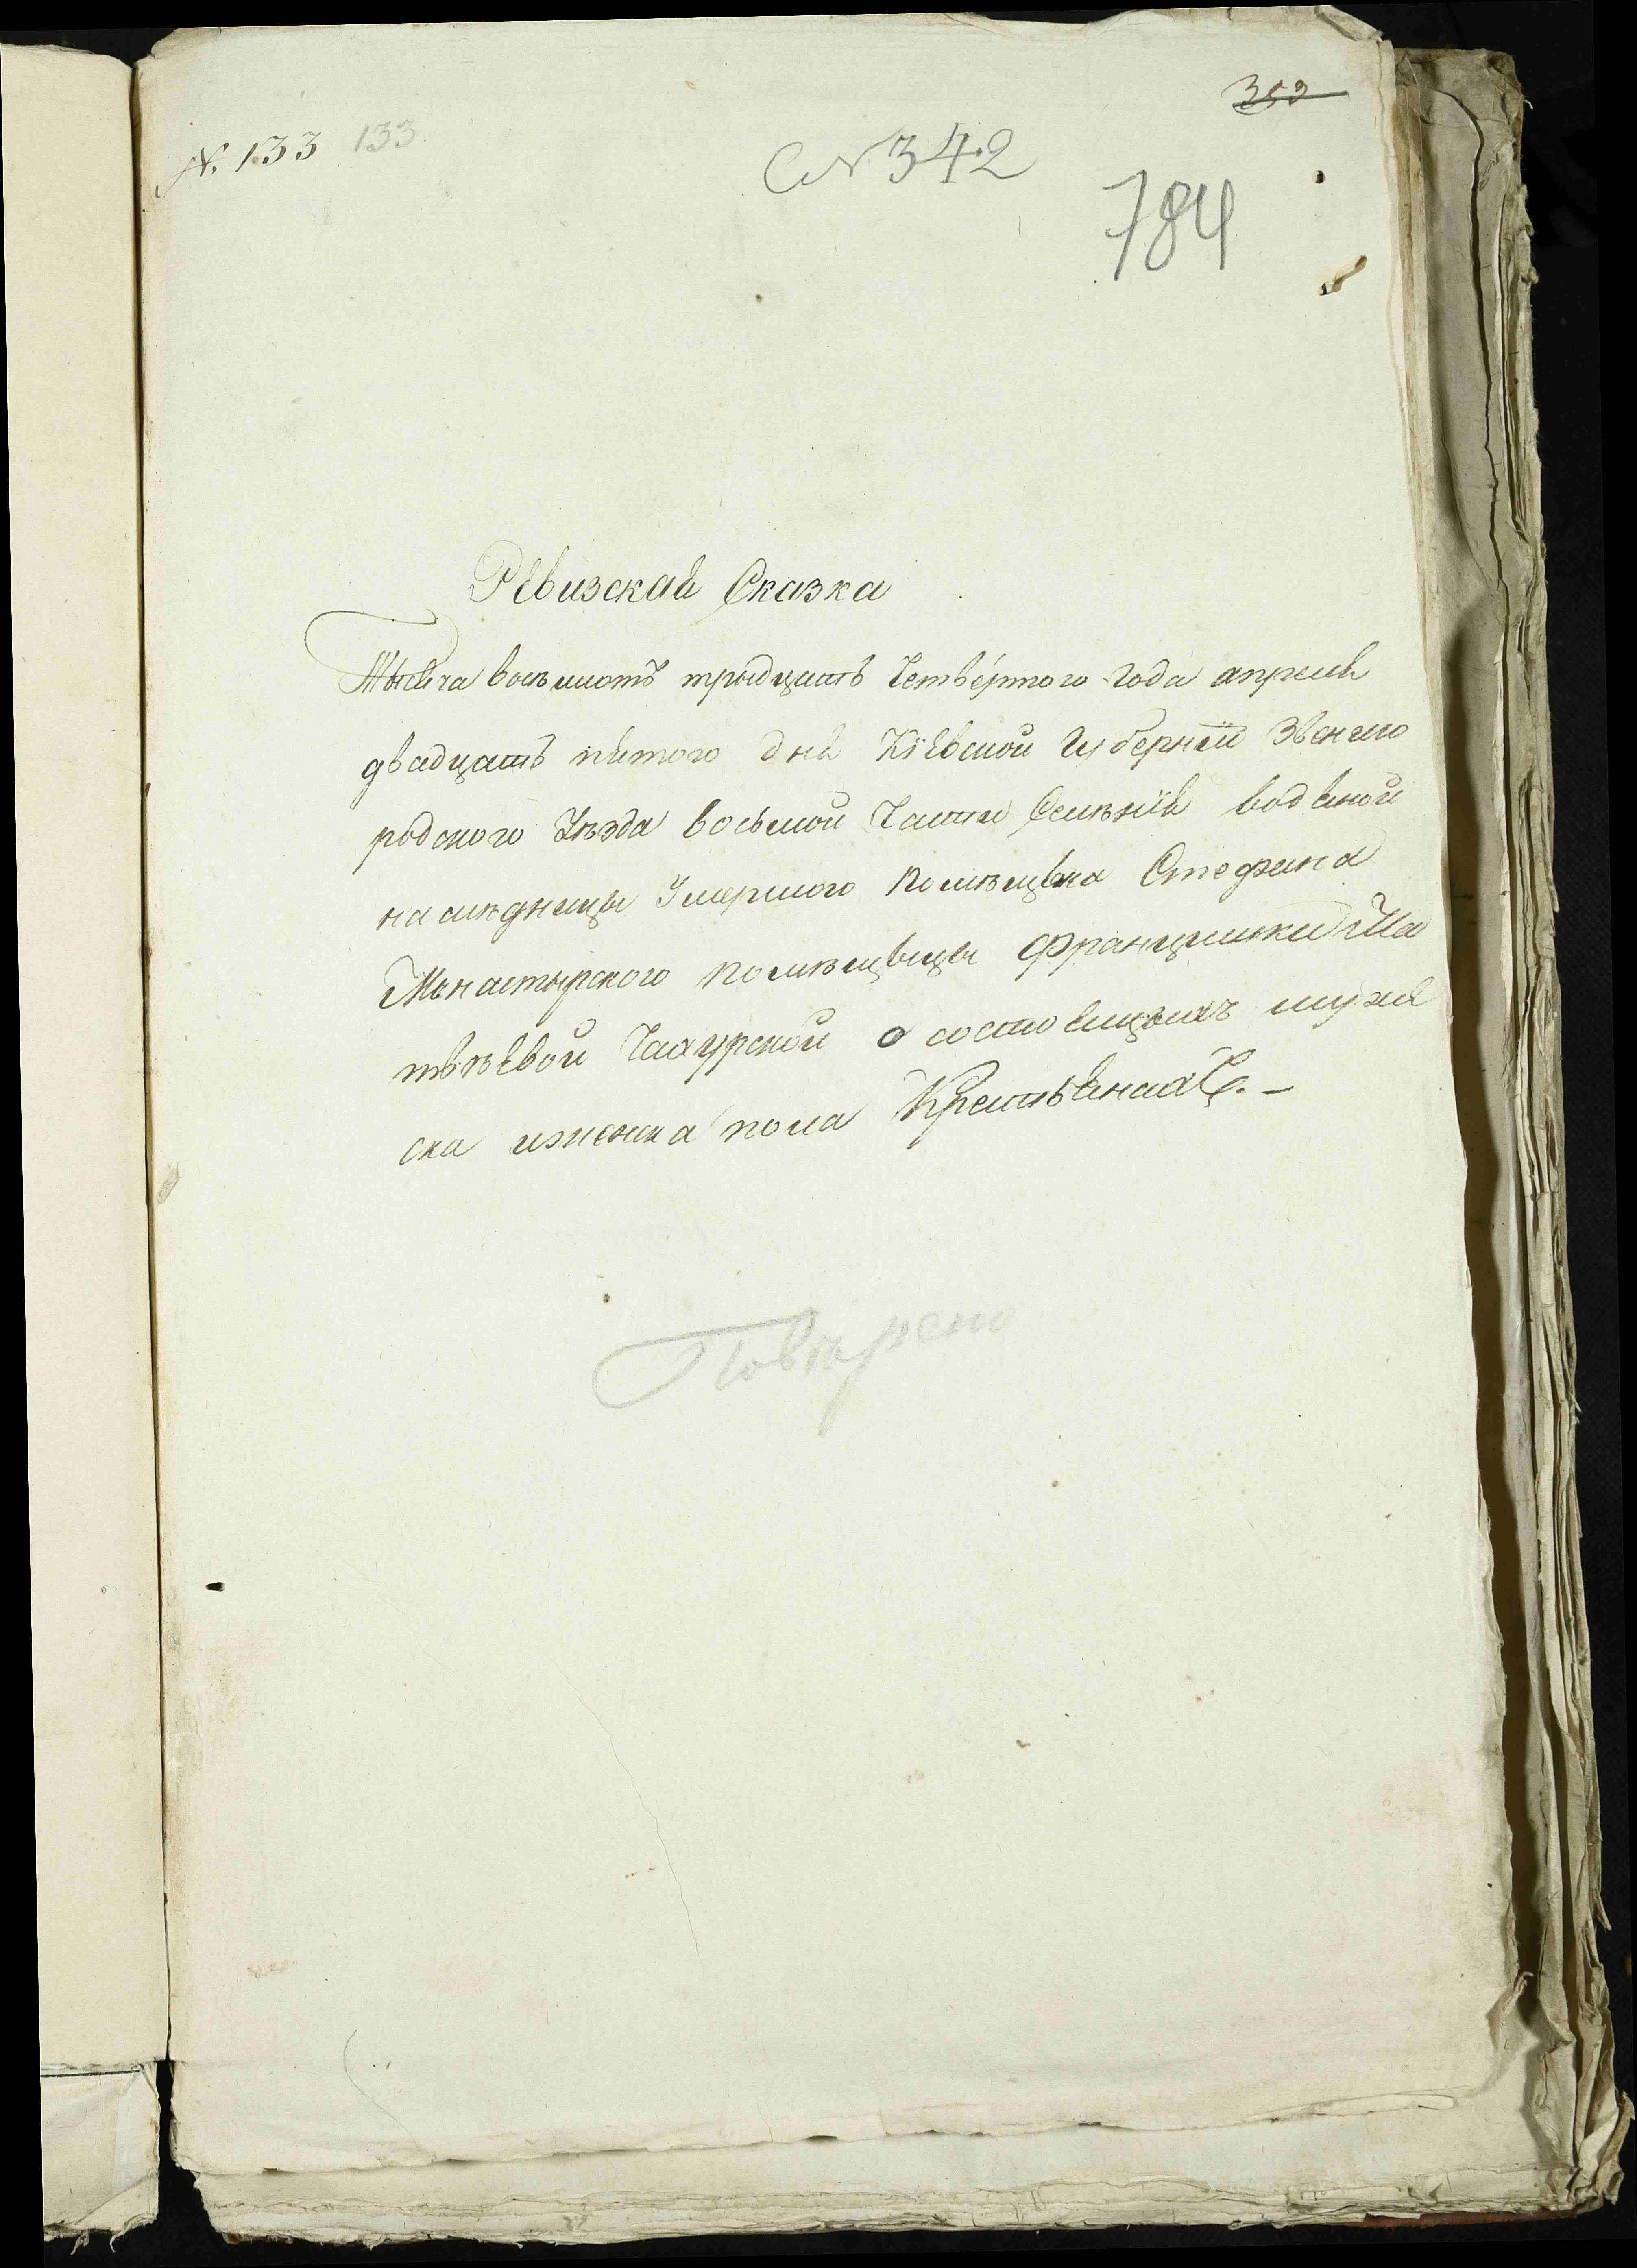 353
№ 133 133
№ 342
784
Ревизская Сказка
Тысяча восъмсотъ тридцать Четвертого года апреля
двадцать пятого дня Кїевской Губернїи Звениго
родского Уѣзда восьмой Части Селѣнїя Водяной
наслѣдницы Умершого помѣщика Стефана
Манастырского помѣщицы Францишки Ма
твѣевой о состоящихъ мужеска
ска иженска пола Крестьянахъ. —
Повѣрено